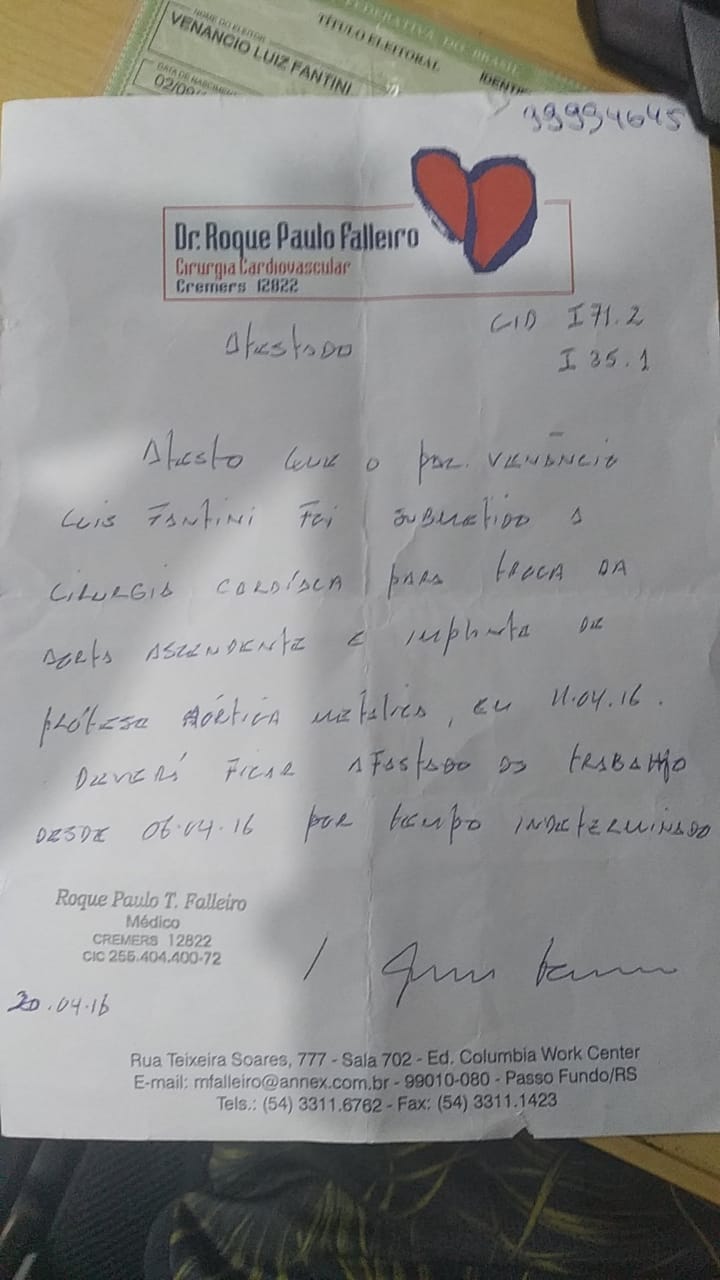 FEDERATIVA DO BRASIL
TÍTULO ELEITORAL
NOME DO ELEITOR
VENANCIO LUIZ FANTINI
IDENTI
DATA DE NASCIMEN
02/09/
99994645
Dr. Roque Paulo Falleiro
Cirurgia Cardiovascular
Cremers 12822
CID I 71.2
I 35.1
Atestado
Atesto que o pac. Venâncio
Luis Fantini foi submetido a
cirurgia cardíaca para troca da
aorta ascendente e implante de
prótese aórtica metálica, em 11.04.16.
Deverá ficar afastado do trabalho
desde 06.04.16 por tempo indeterminado
Roque Paulo T. Falleiro
Médico
CREMERS 12822
CIC 255.404.400-72
20.04.16
Rua Teixeira Soares, 777 - Sala 702 - Ed. Columbia Work Center
E-mail: mfalleiro@annex.com.br - 99010-080 - Passo Fundo/RS
Tels.: (54) 3311.6762 - Fax: (54) 3311.1423